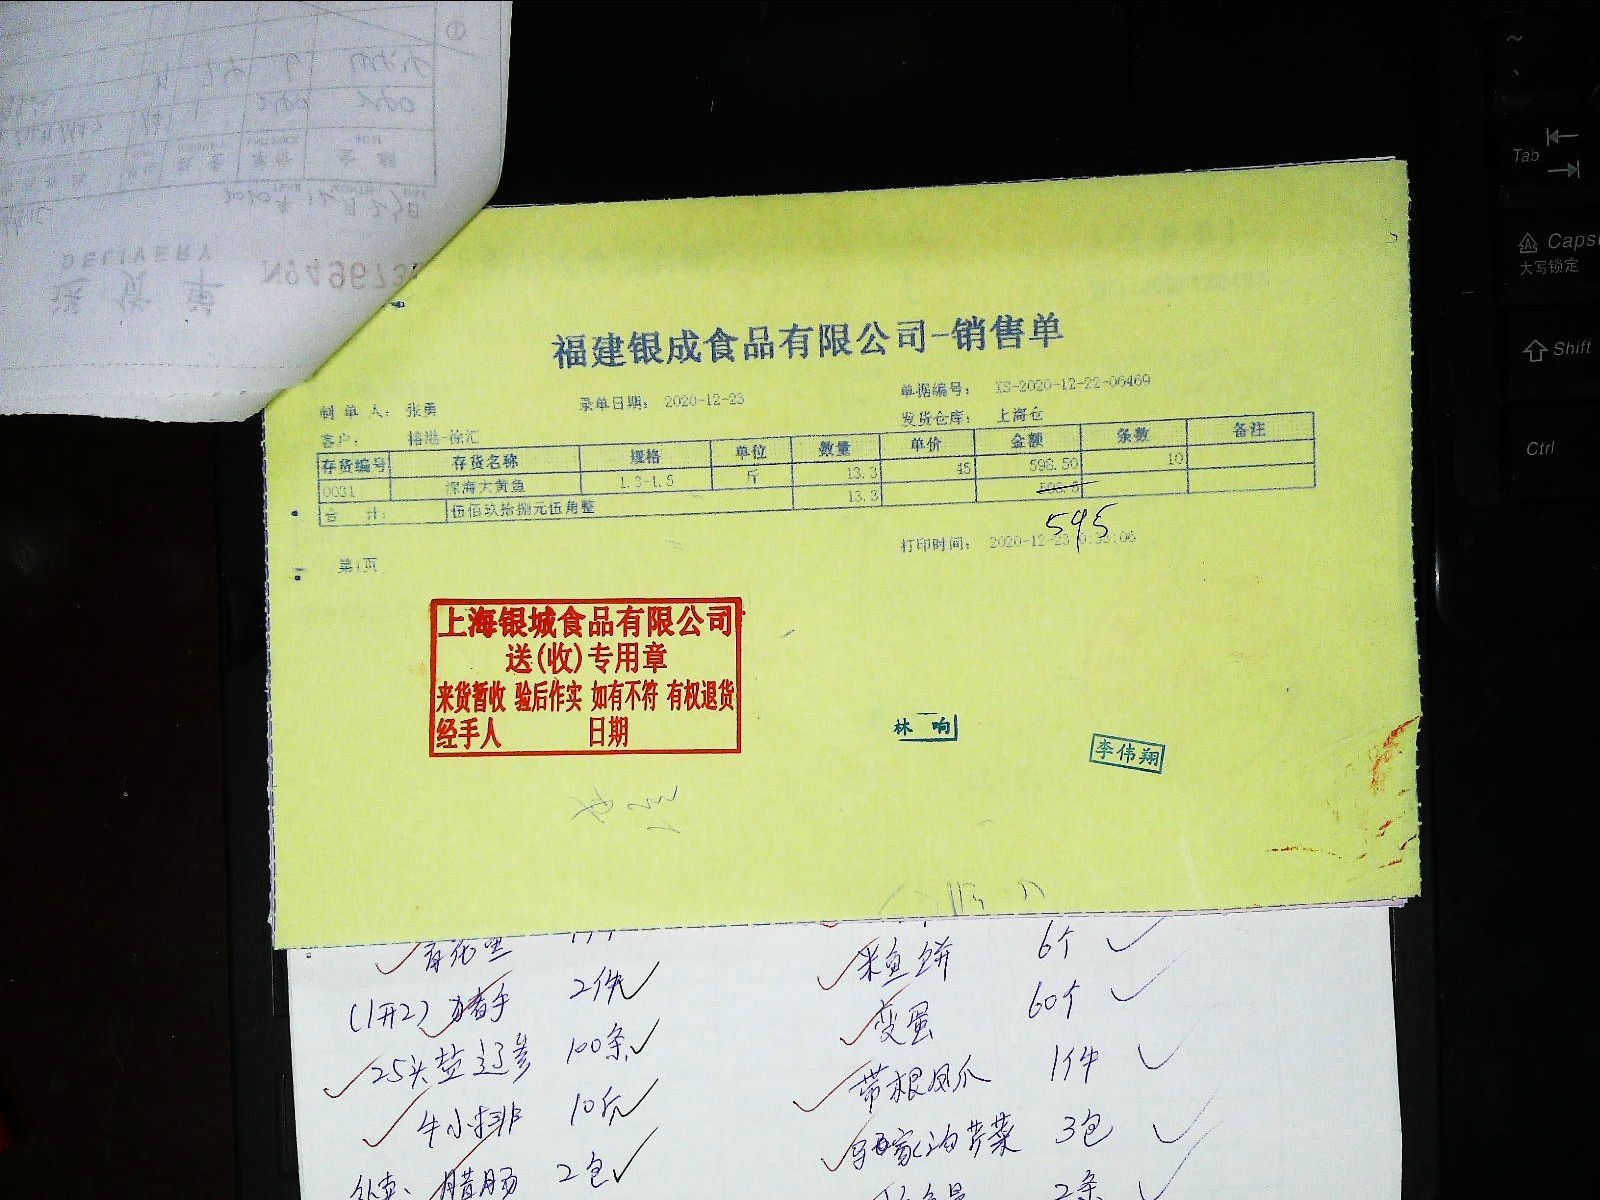 DELIVERY
送货单
№49673
2020年12月23日
福建银成食品有限公司-销售单
制单人: 张勇 录单日期: 2020-12-23 单据编号: XS-2020-12-22-06469
客户: 榕港-徐汇 发货仓库: 上海仓
存货编号 存货名称 规格 单位 数量 单价 金额 条数 备注
0031 深海大黄鱼 1.3-1.5 斤 13.3 45 598.50 10
合 计: 伍佰玖拾捌元伍角整 13.3 598.5
595
第1页 打印时间: 2020-12-23
上海银城食品有限公司
送(收)专用章
来货暂收 验后作实 如有不符 有权退货
经手人 日期
林 响
李伟翔
6个
(1开2) 猪手 2件 变蛋 60个
25头盐辽参 100条 带根凤爪 1件
牛小排 10斤 芹菜 3包
腊肠 2包 2条
~
Tab
Caps
大写锁定
Shift
Ctrl